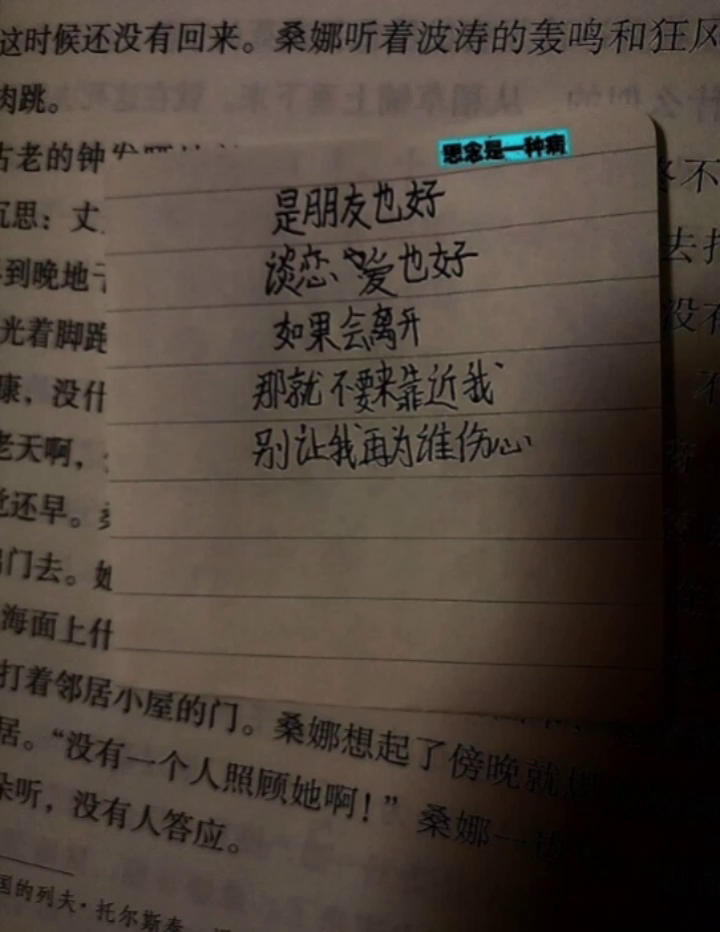 这时候还没有回来。桑娜听着波涛的轰鸣和狂风
肉跳。
古老的钟
思念是一种病
沉思：丈
是朋友也好
到晚地
谈恋爱也好
去
光着脚跑
如果会离开
没
康，没什
那就不要来靠近我
老天啊，
别让我再为谁伤心
还早。
门去。她
海面上什
打着邻居小屋的门。桑娜想起了傍晚就
居。“没有一个人照顾她啊！”桑娜一
听，没有人答应。
国的列夫·托尔斯泰